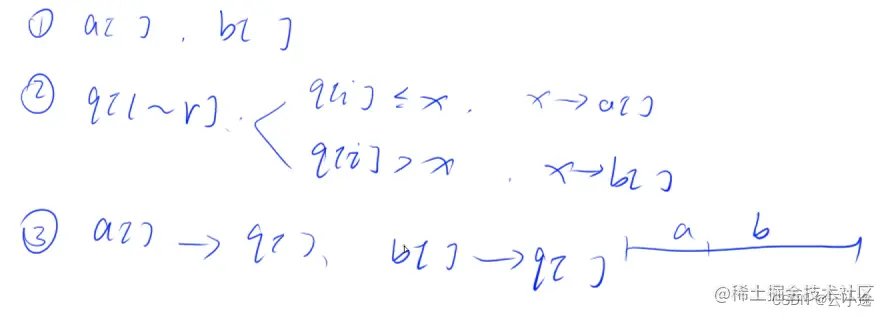 ① a[ ] , b[ ]
② q[l ~ r] . q[i] ≤ x . x → a[ ]
q[i] > x . x → b[ ]
③ a[ ] → q[ ] , b[ ] → q[ ] a b
@稀土掘金技术社区